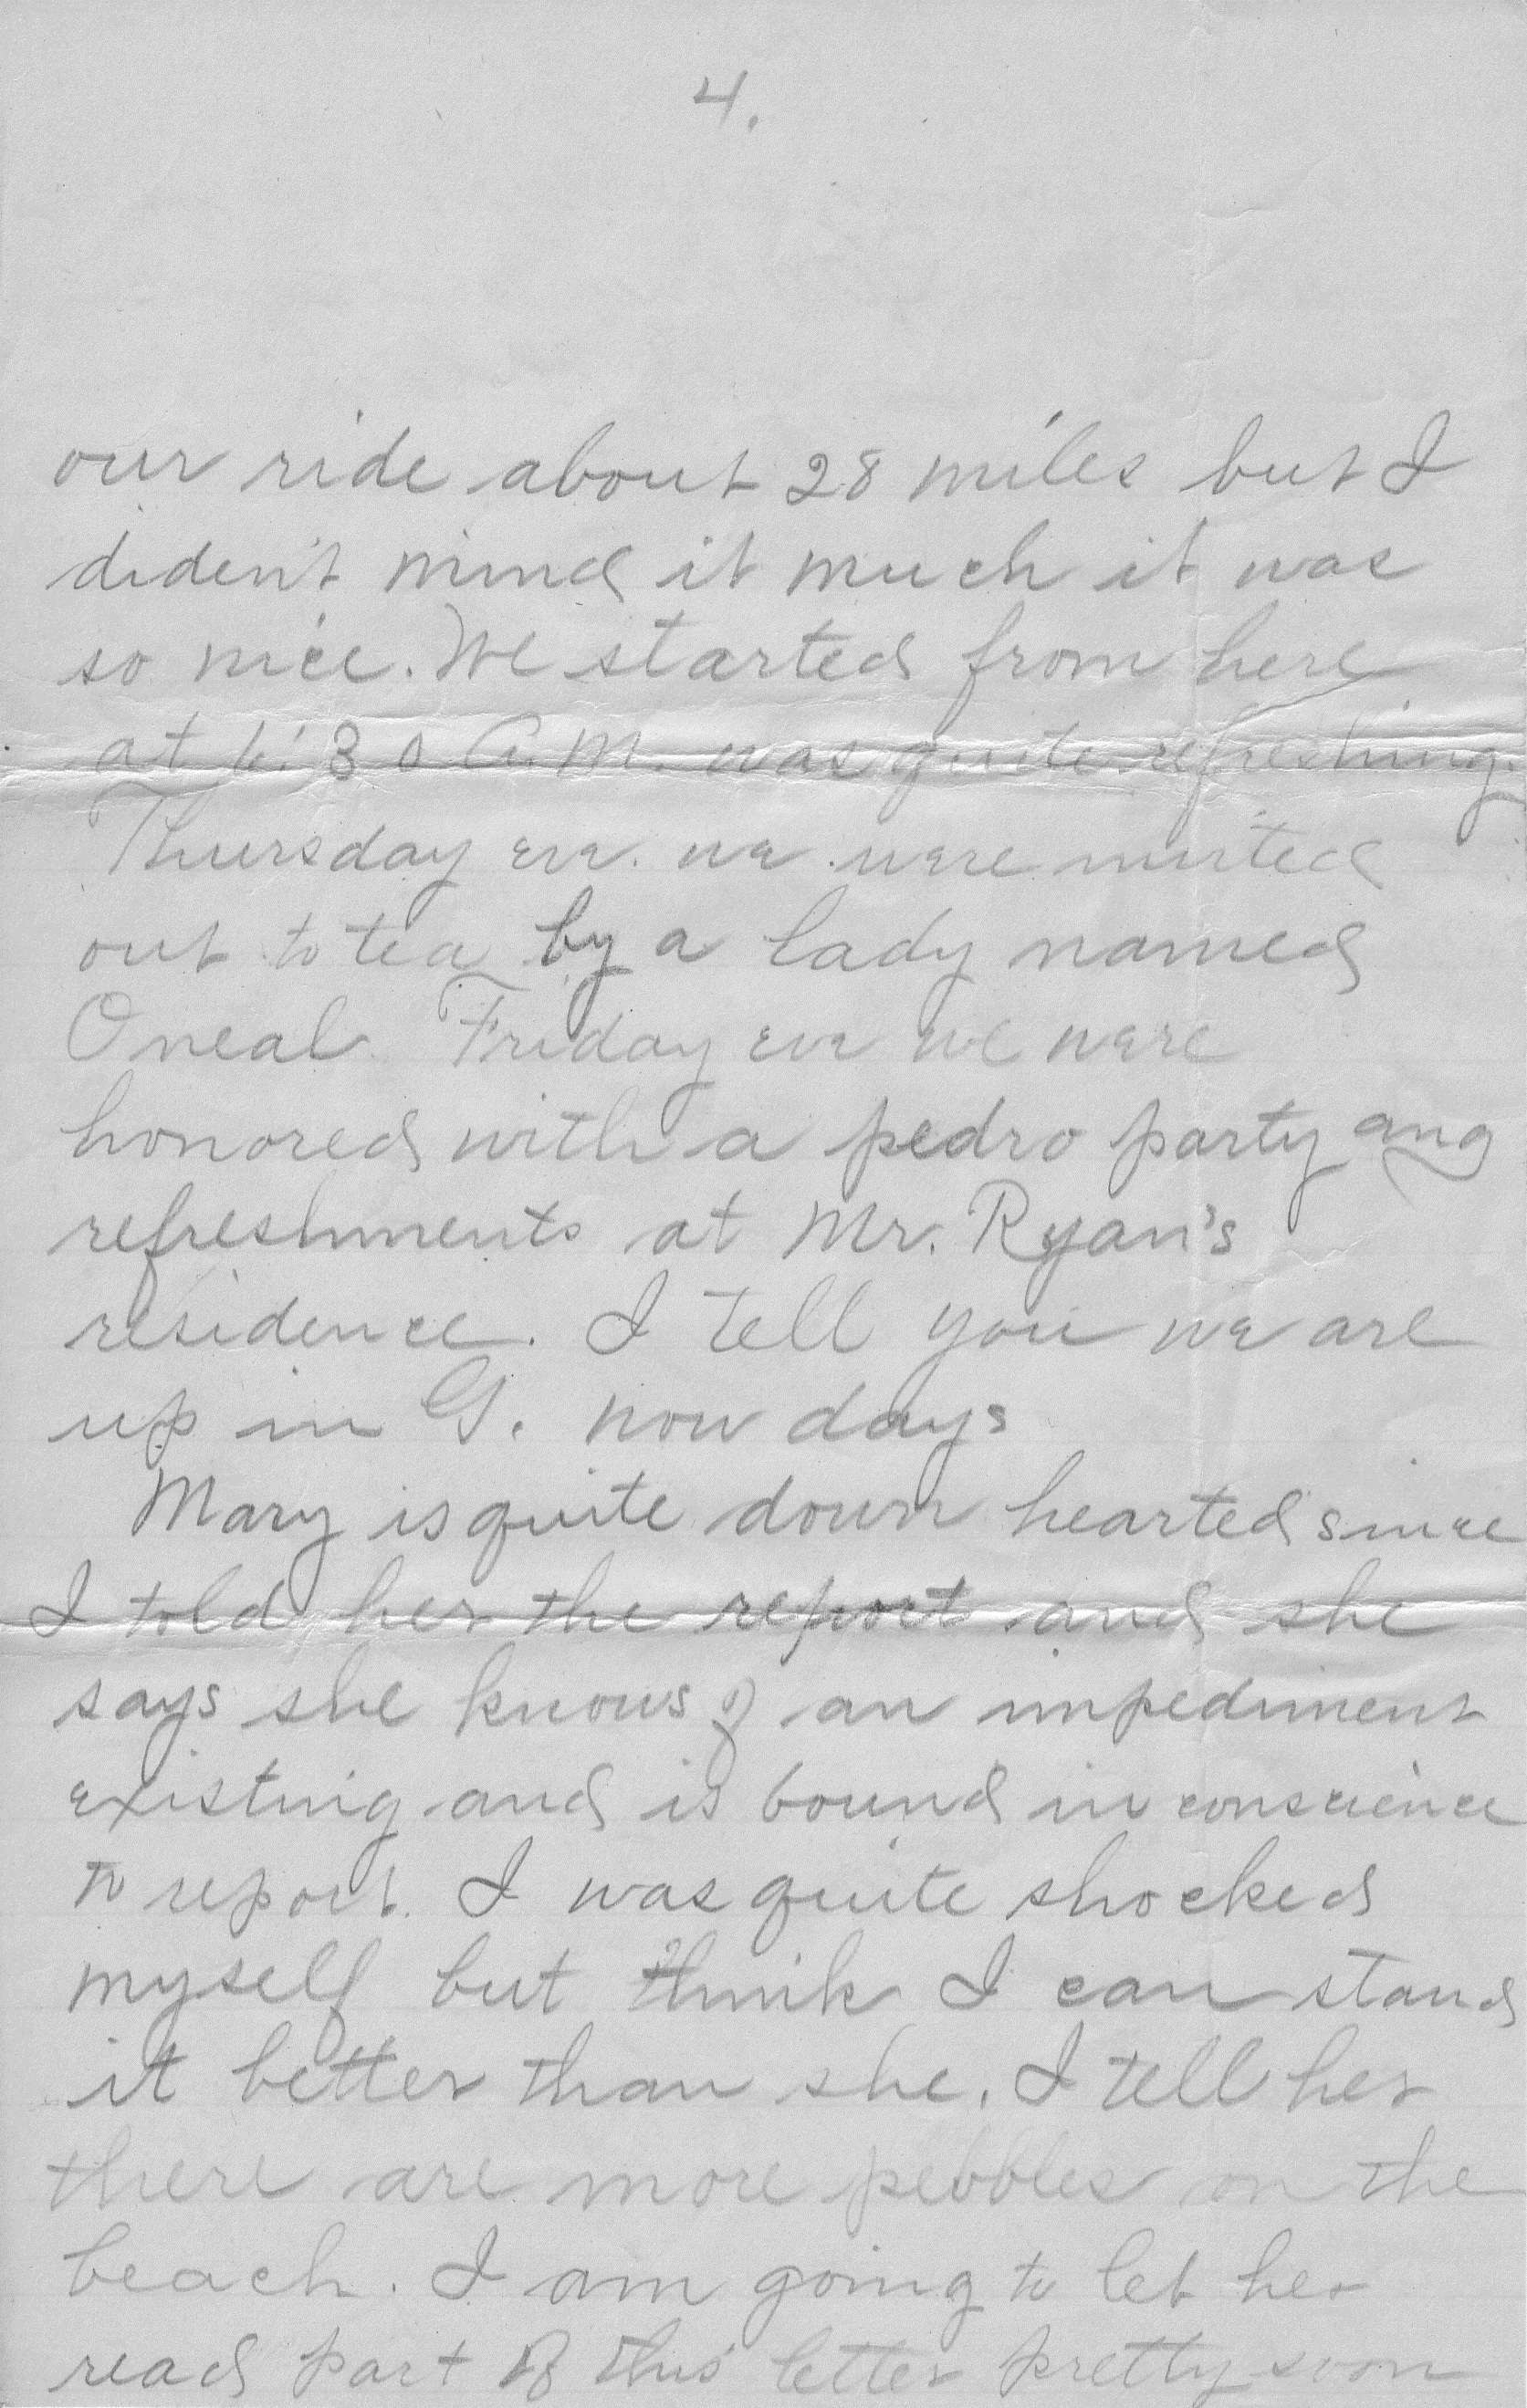 4.
our ride about 28 miles but I
diden't mind it much it was
so nice. We started from here
at 6:30 A.M. was quite refreshing.
Thursday eve. we were invited
out to tea by a lady named
Oneal. Friday eve we were
honored with a pedro party and
refreshments at Mr. Ryan's
residence. I tell you we are
up in G. now days
Mary is quite down hearted since
I told her the report and she
says she knows of an impediment
existing and is bound in conscience
to report. I was quite shocked
myself but think I can stand
it better than she. I tell her
there are more pebbles on the
beach. I am going to let her
read part of this letter pretty soon